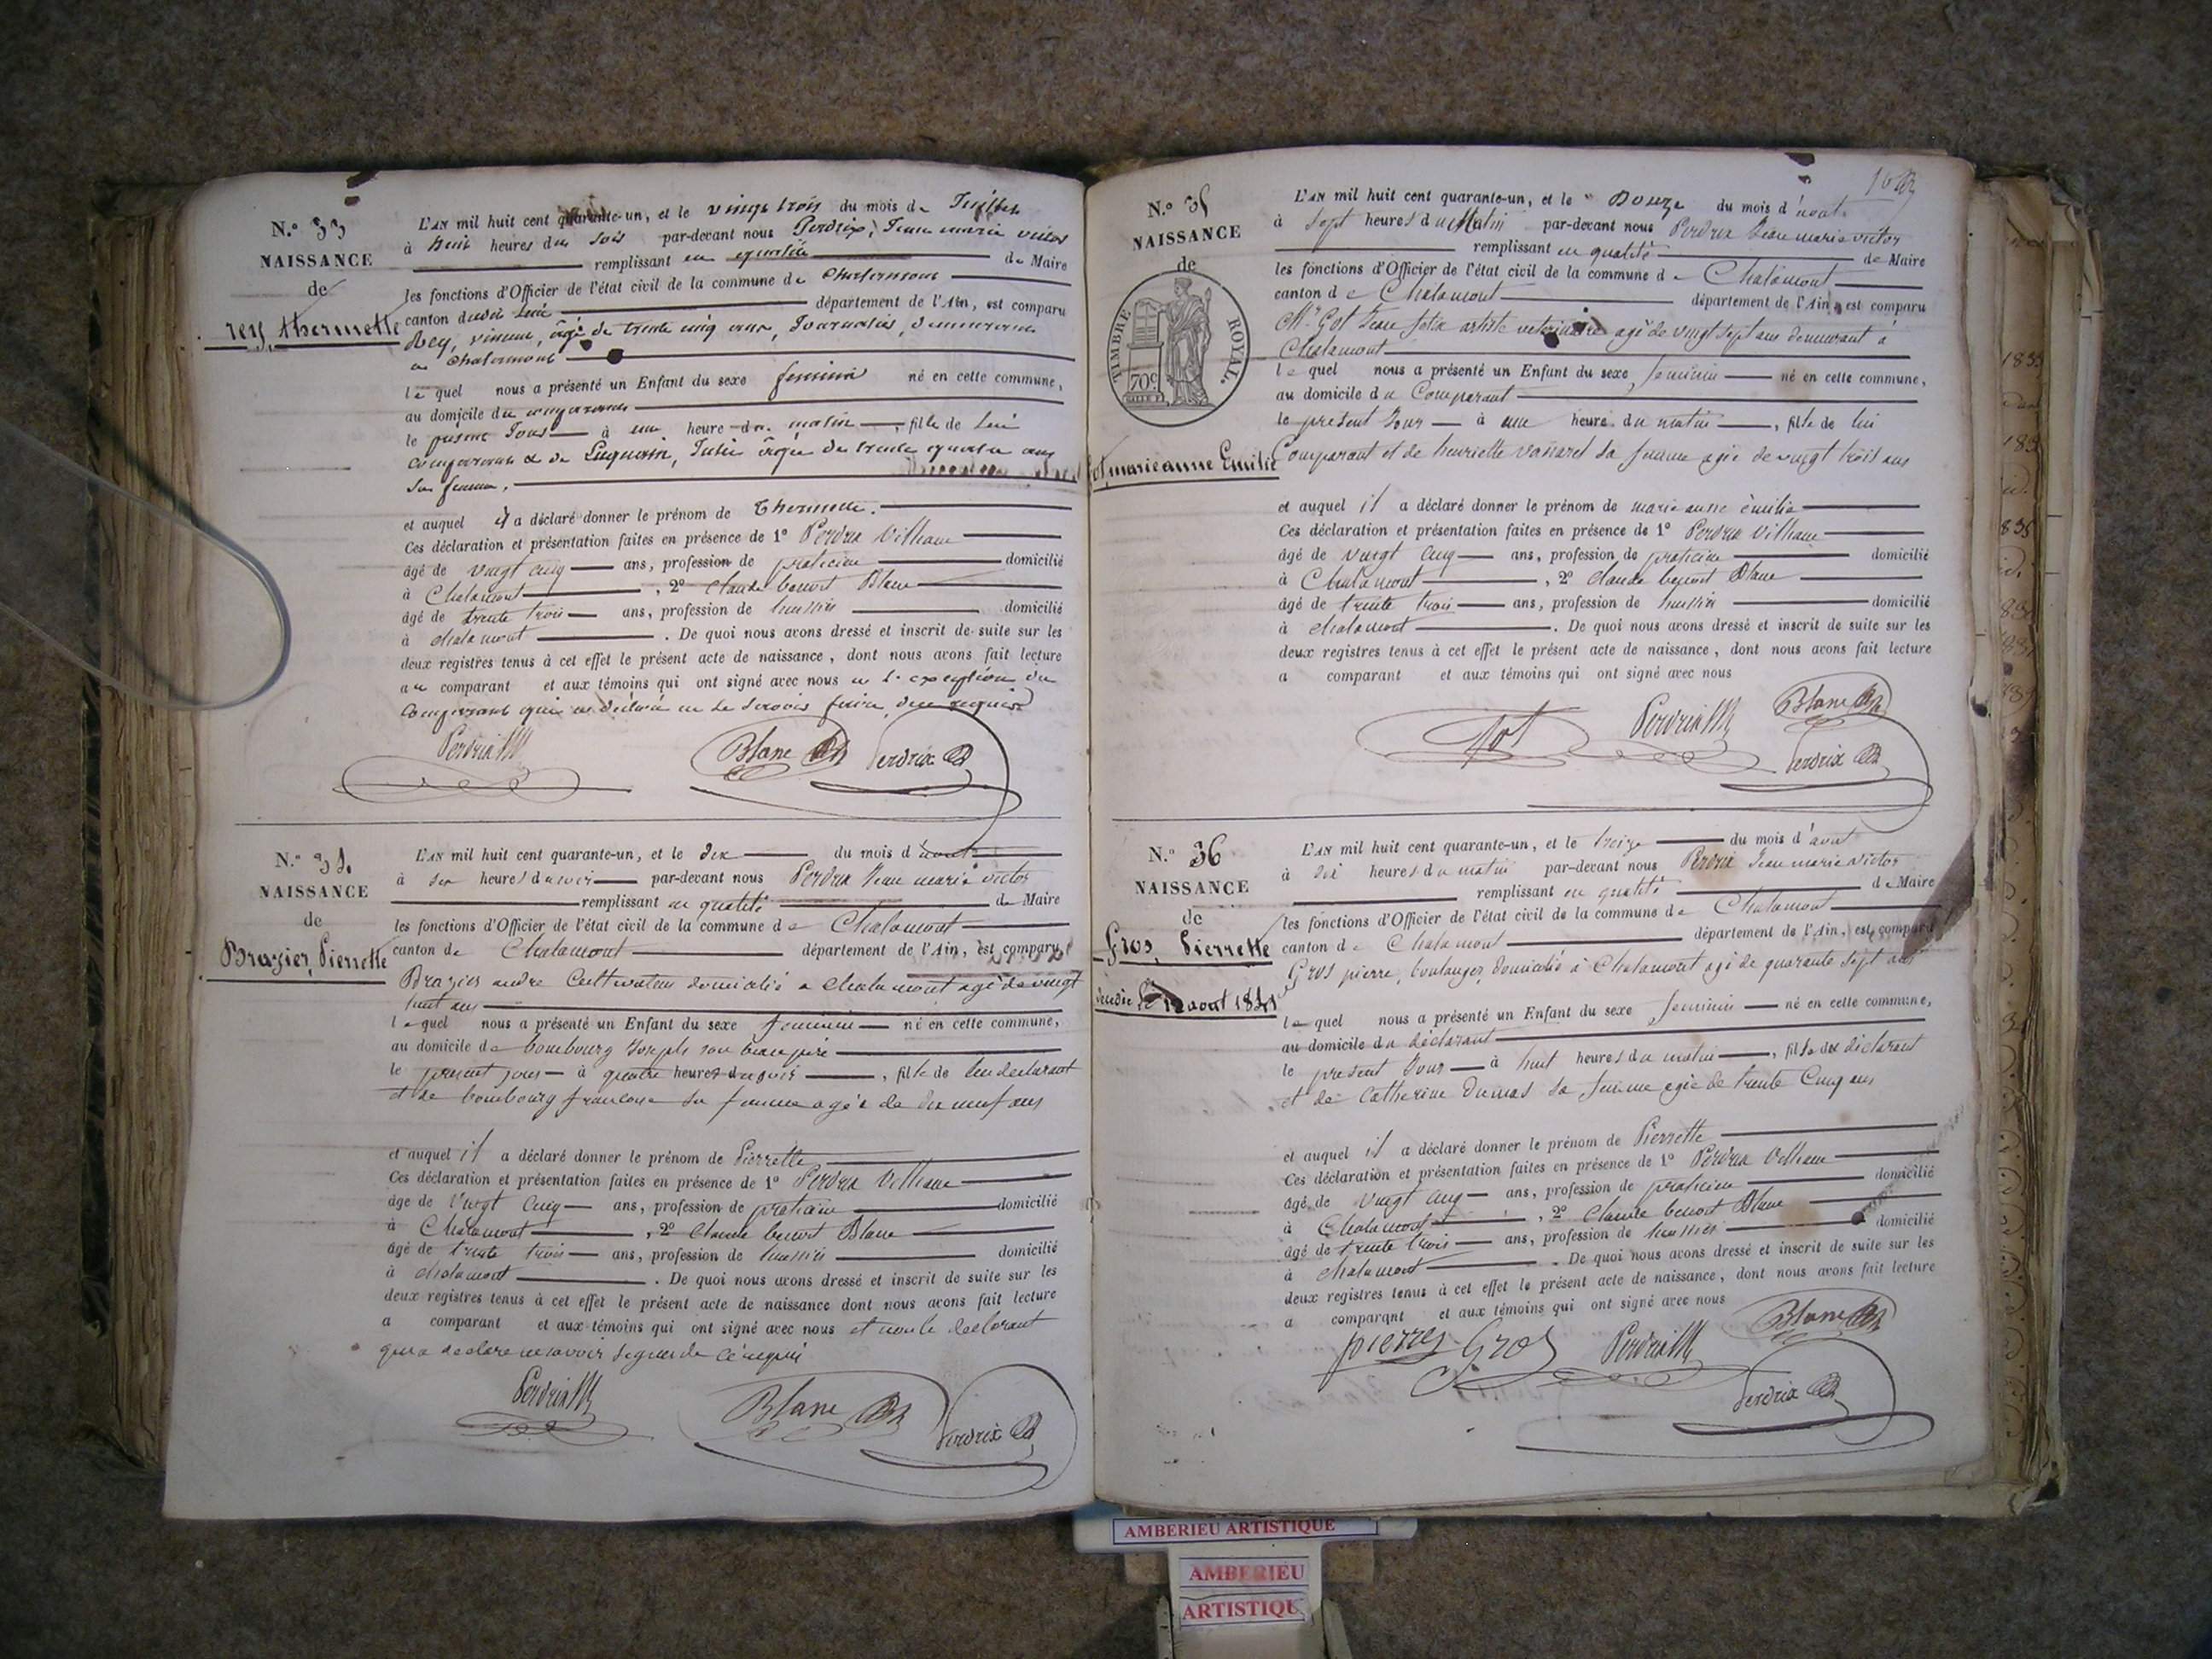 N.° 33
NAISSANCE
de
rey, thermette
L'AN mil huit cent quarante-un, et le vingt trois du mois de Juillet
à huit heures du soir par-devant nous Perdrix, Jean marie victor
remplissant en qualité de Maire
les fonctions d'Officier de l'état civil de la commune de Chalamont
canton dudit lieu département de l'Ain, est comparu
Rey, vincent, âgé de trente cinq ans, Journalier, demeurant
a Chalamont
lequel nous a présenté un Enfant du sexe feminin né en cette commune,
au domicile du comparant
le present Jour à une heure du matin, fille de lui
comparant & de Julie âgée de trente quatre ans
sa femme,
et auquel il a déclaré donner le prénom de thermette.
Ces déclaration et présentation faites en présence de 1° Perdrix Villiame
âgé de vingt cinq ans, profession de praticien domicilié
à Chalamont, 2° Claude benoit Blanc
âgé de trente trois ans, profession de huissier domicilié
à chalamont. De quoi nous avons dressé et inscrit de suite sur les
deux registres tenus à cet effet le présent acte de naissance, dont nous avons fait lecture
au comparant et aux témoins qui ont signé avec nous a l'exception du
comparant qui a déclaré ne le savoir faire, de ce requis
Perdrix Blanc Perdrix
N.° 34
NAISSANCE
de
Brazier, Pierrette
L'AN mil huit cent quarante-un, et le dix du mois d'aout
à six heures du soir par-devant nous Perdrix Jean marie victor
remplissant en qualité de Maire
les fonctions d'Officier de l'état civil de la commune de Chalamont
canton de Chalamont département de l'Ain, est comparu
Brazier andre Cultivateur domicilié a chalamont agé de vingt
huit ans
lequel nous a présenté un Enfant du sexe feminin né en cette commune,
au domicile de bombourg Joseph son beau père
le present jour à quatre heures du soir, fille de lui declarant
et de bombourg francoise sa femme agée de dix neuf ans
et auquel il a déclaré donner le prénom de Pierrette
Ces déclaration et présentation faites en présence de 1° Perdrix Villiame
âgé de vingt cinq ans, profession de praticien domicilié
à Chalamont, 2° Claude benoit Blanc
âgé de trente trois ans, profession de huissier domicilié
à chalamont. De quoi nous avons dressé et inscrit de suite sur les
deux registres tenus à cet effet le présent acte de naissance dont nous avons fait lecture
a comparant et aux témoins qui ont signé avec nous et non le declarant
qui a declaré ne savoir signer de ce requis
Perdrix Blanc Perdrix
N.° 35
NAISSANCE
de
TIMBRE ROYAL.
70c
Got, marie anne Emilie
L'AN mil huit cent quarante-un, et le Douze du mois d'aout
à sept heures du Matin par-devant nous Perdrix Jean marie victor
remplissant en qualité de Maire
les fonctions d'Officier de l'état civil de la commune de Chalamont
canton de Chalamont département de l'Ain, est comparu
Mr. Got Jean felix artiste veterinaire agé de vingt sept ans demeurant à
Chalamont
lequel nous a présenté un Enfant du sexe feminin né en cette commune,
au domicile du Comparant
le present Jour à une heure du matin, fille de lui
Comparant et de henriette sa femme agée de vingt trois ans
et auquel il a déclaré donner le prénom de marie anne émilie
Ces déclaration et présentation faites en présence de 1° Perdrix Villiame
âgé de vingt cinq ans, profession de praticien domicilié
à Chalamont, 2° claude benoit Blanc
âgé de trente trois ans, profession de huissier domicilié
à chalamont. De quoi nous avons dressé et inscrit de suite sur les
deux registres tenus à cet effet le présent acte de naissance, dont nous avons fait lecture
a comparant et aux témoins qui ont signé avec nous
Got Perdrix Blanc
Perdrix
N.° 36
NAISSANCE
de
Gros, Pierrette
aout 1841
L'AN mil huit cent quarante-un, et le treize du mois d'aout
à dix heures du matin par-devant nous Perdrix Jean marie victor
remplissant en qualité de Maire
les fonctions d'Officier de l'état civil de la commune de Chalamont
canton de Chalamont département de l'Ain, est comparu
Gros pierre, boulanger, domicilié à Chalamont agé de quarante sept ans
lequel nous a présenté un Enfant du sexe feminin né en cette commune,
au domicile du déclarant
le present Jour à huit heures du matin, fille du déclarant
et de Catherine Dumas sa femme agée de trente Cinq ans
et auquel il a déclaré donner le prénom de Pierrette
Ces déclaration et présentation faites en présence de 1° Perdrix Villiame
âgé de vingt cinq ans, profession de praticien domicilié
à Chalamont, 2° Claude benoit Blanc
âgé de trente trois ans, profession de huissier domicilié
à chalamont. De quoi nous avons dressé et inscrit de suite sur les
deux registres tenus à cet effet le présent acte de naissance, dont nous avons fait lecture
a comparant et aux témoins qui ont signé avec nous
pierre Gros Perdrix Blanc
Perdrix
AMBERIEU ARTISTIQUE
AMBERIEU
ARTISTIQU